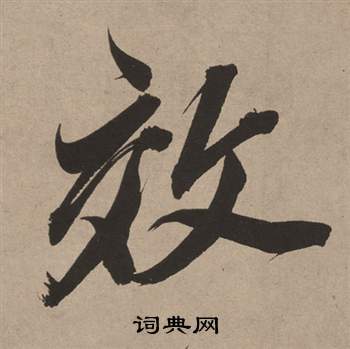 效
词典网